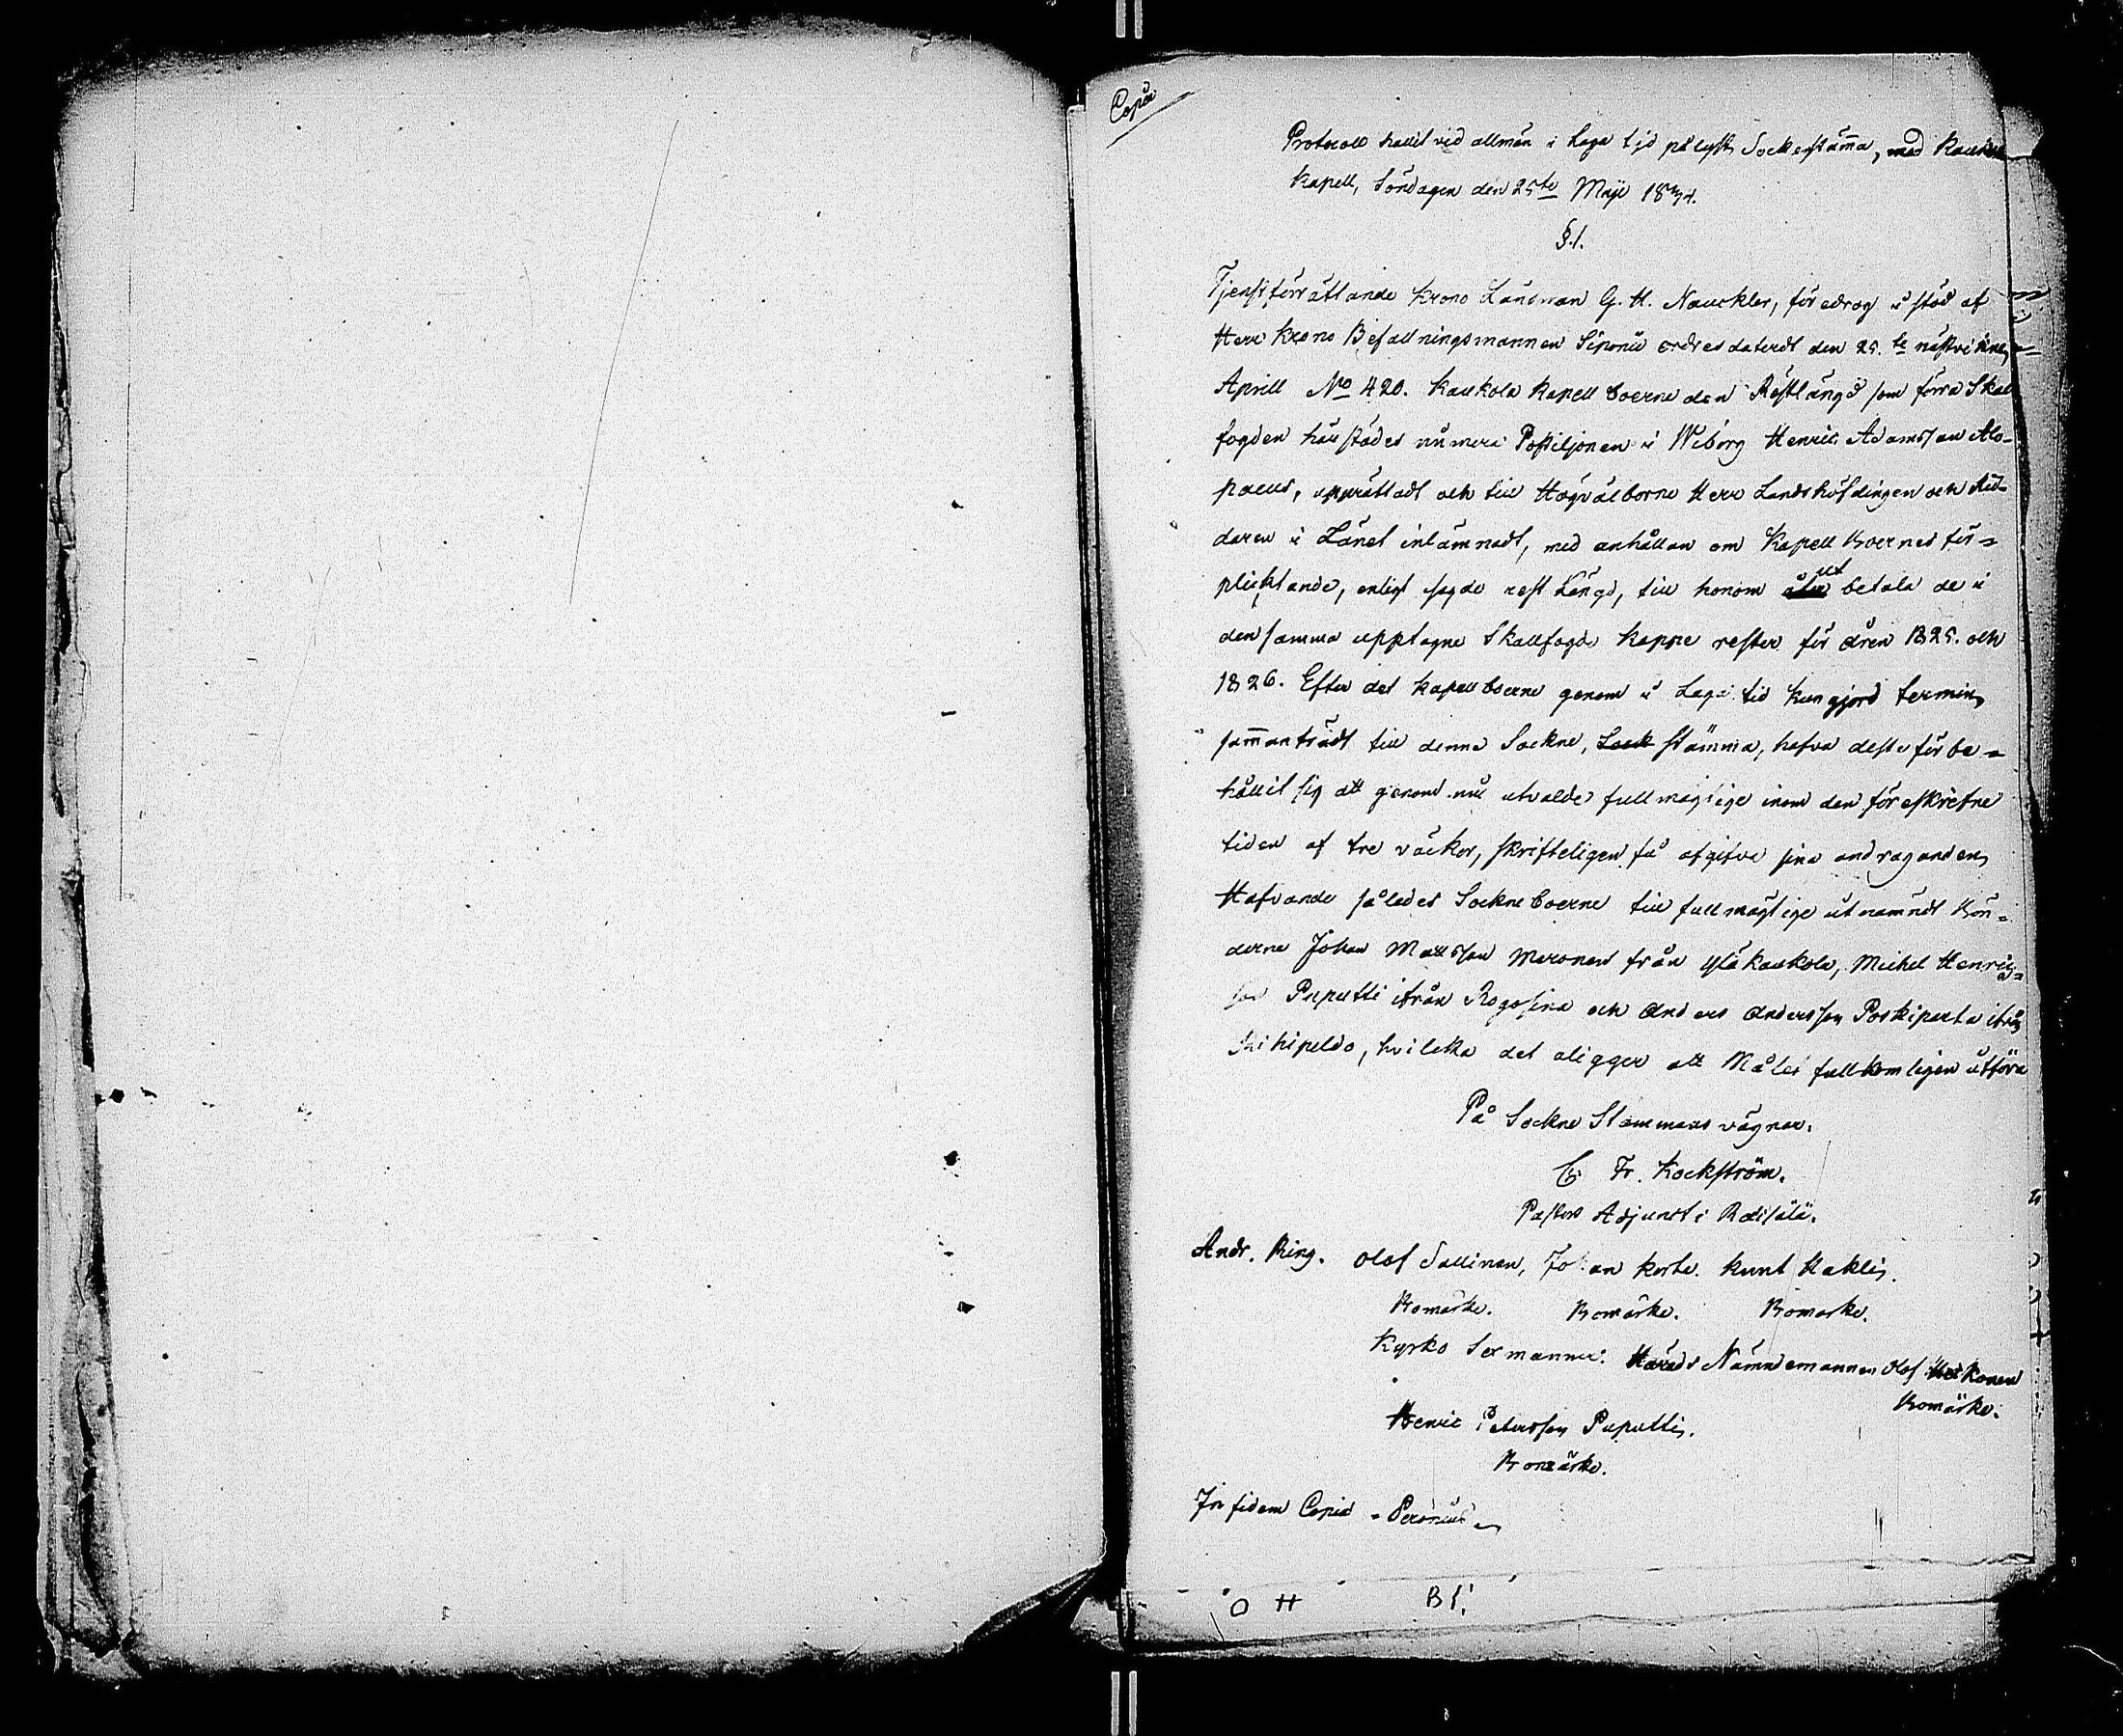 Copia
Protocoll hållit vid allmän i Laga tid pålyst Sockenstämma, med Kaukola
Kapell, Söndagen den 25te Maji 1834.
§.1.
Tjenstförrättande Krono Länsman G. H. Nauckler, föredrog i stöd af
Herr Krono Befallningsmannen Siponii ordres daterdt den 25.te nästvikne
Aprill No 420. Kaukola Kapell boerne den Restlängd som förra Skall
fogden härstädes numera Postiljonen i Wiborg Henric Adamsson Alo-
paeus, upprättadt och till Högvälborne Herr Landshöfdingen och Rid-
daren i Länet inlämnadt, med anhållan om Kapell Boernes för-
plicktande, enligt sagde rest Längd, till honom åter ut betala de i
densamma upptagne Skallfogde kappe rester för åren 1825. och
1826. Efter det kapellboerne genom i Laga tid kungjord termin,
sammanträdt till denna Sockne, Sock stämma, hafva desse förbe-
hållit sig att genom nu utvalde fullmägtige inom den föreskrefne
tiden af tre veckor, skrifteligen få afgifva sina andraganden,
Hafvande således Sockneboerne till fullmägtige utnämndt Bön-
derne Johan Mattsson Meronen från Yläkaukola, Michel Henrics-
son Puputti ifrån Rogosina och Anders Andersson Poskiparta ifrån
Kihipeldo, hvilcka det åligger att Målet fullkomligen utföra
På Sockne Stämmans vägnar.
C. Fr. Kockström.
Pastors Adjunct i Räisälä.
Andr. Ring. Olof Sallinen, Johan Korte. Knut Haklin.
Bomärke. Bomärke. Bomärke.
Kyrko Sexmanner. Härads Nämndemannen Olof Heikonen
Bomärke.
Henric Petersson Puputti.
Bomärke.
In fidem Copiae Peronius
O H B f.